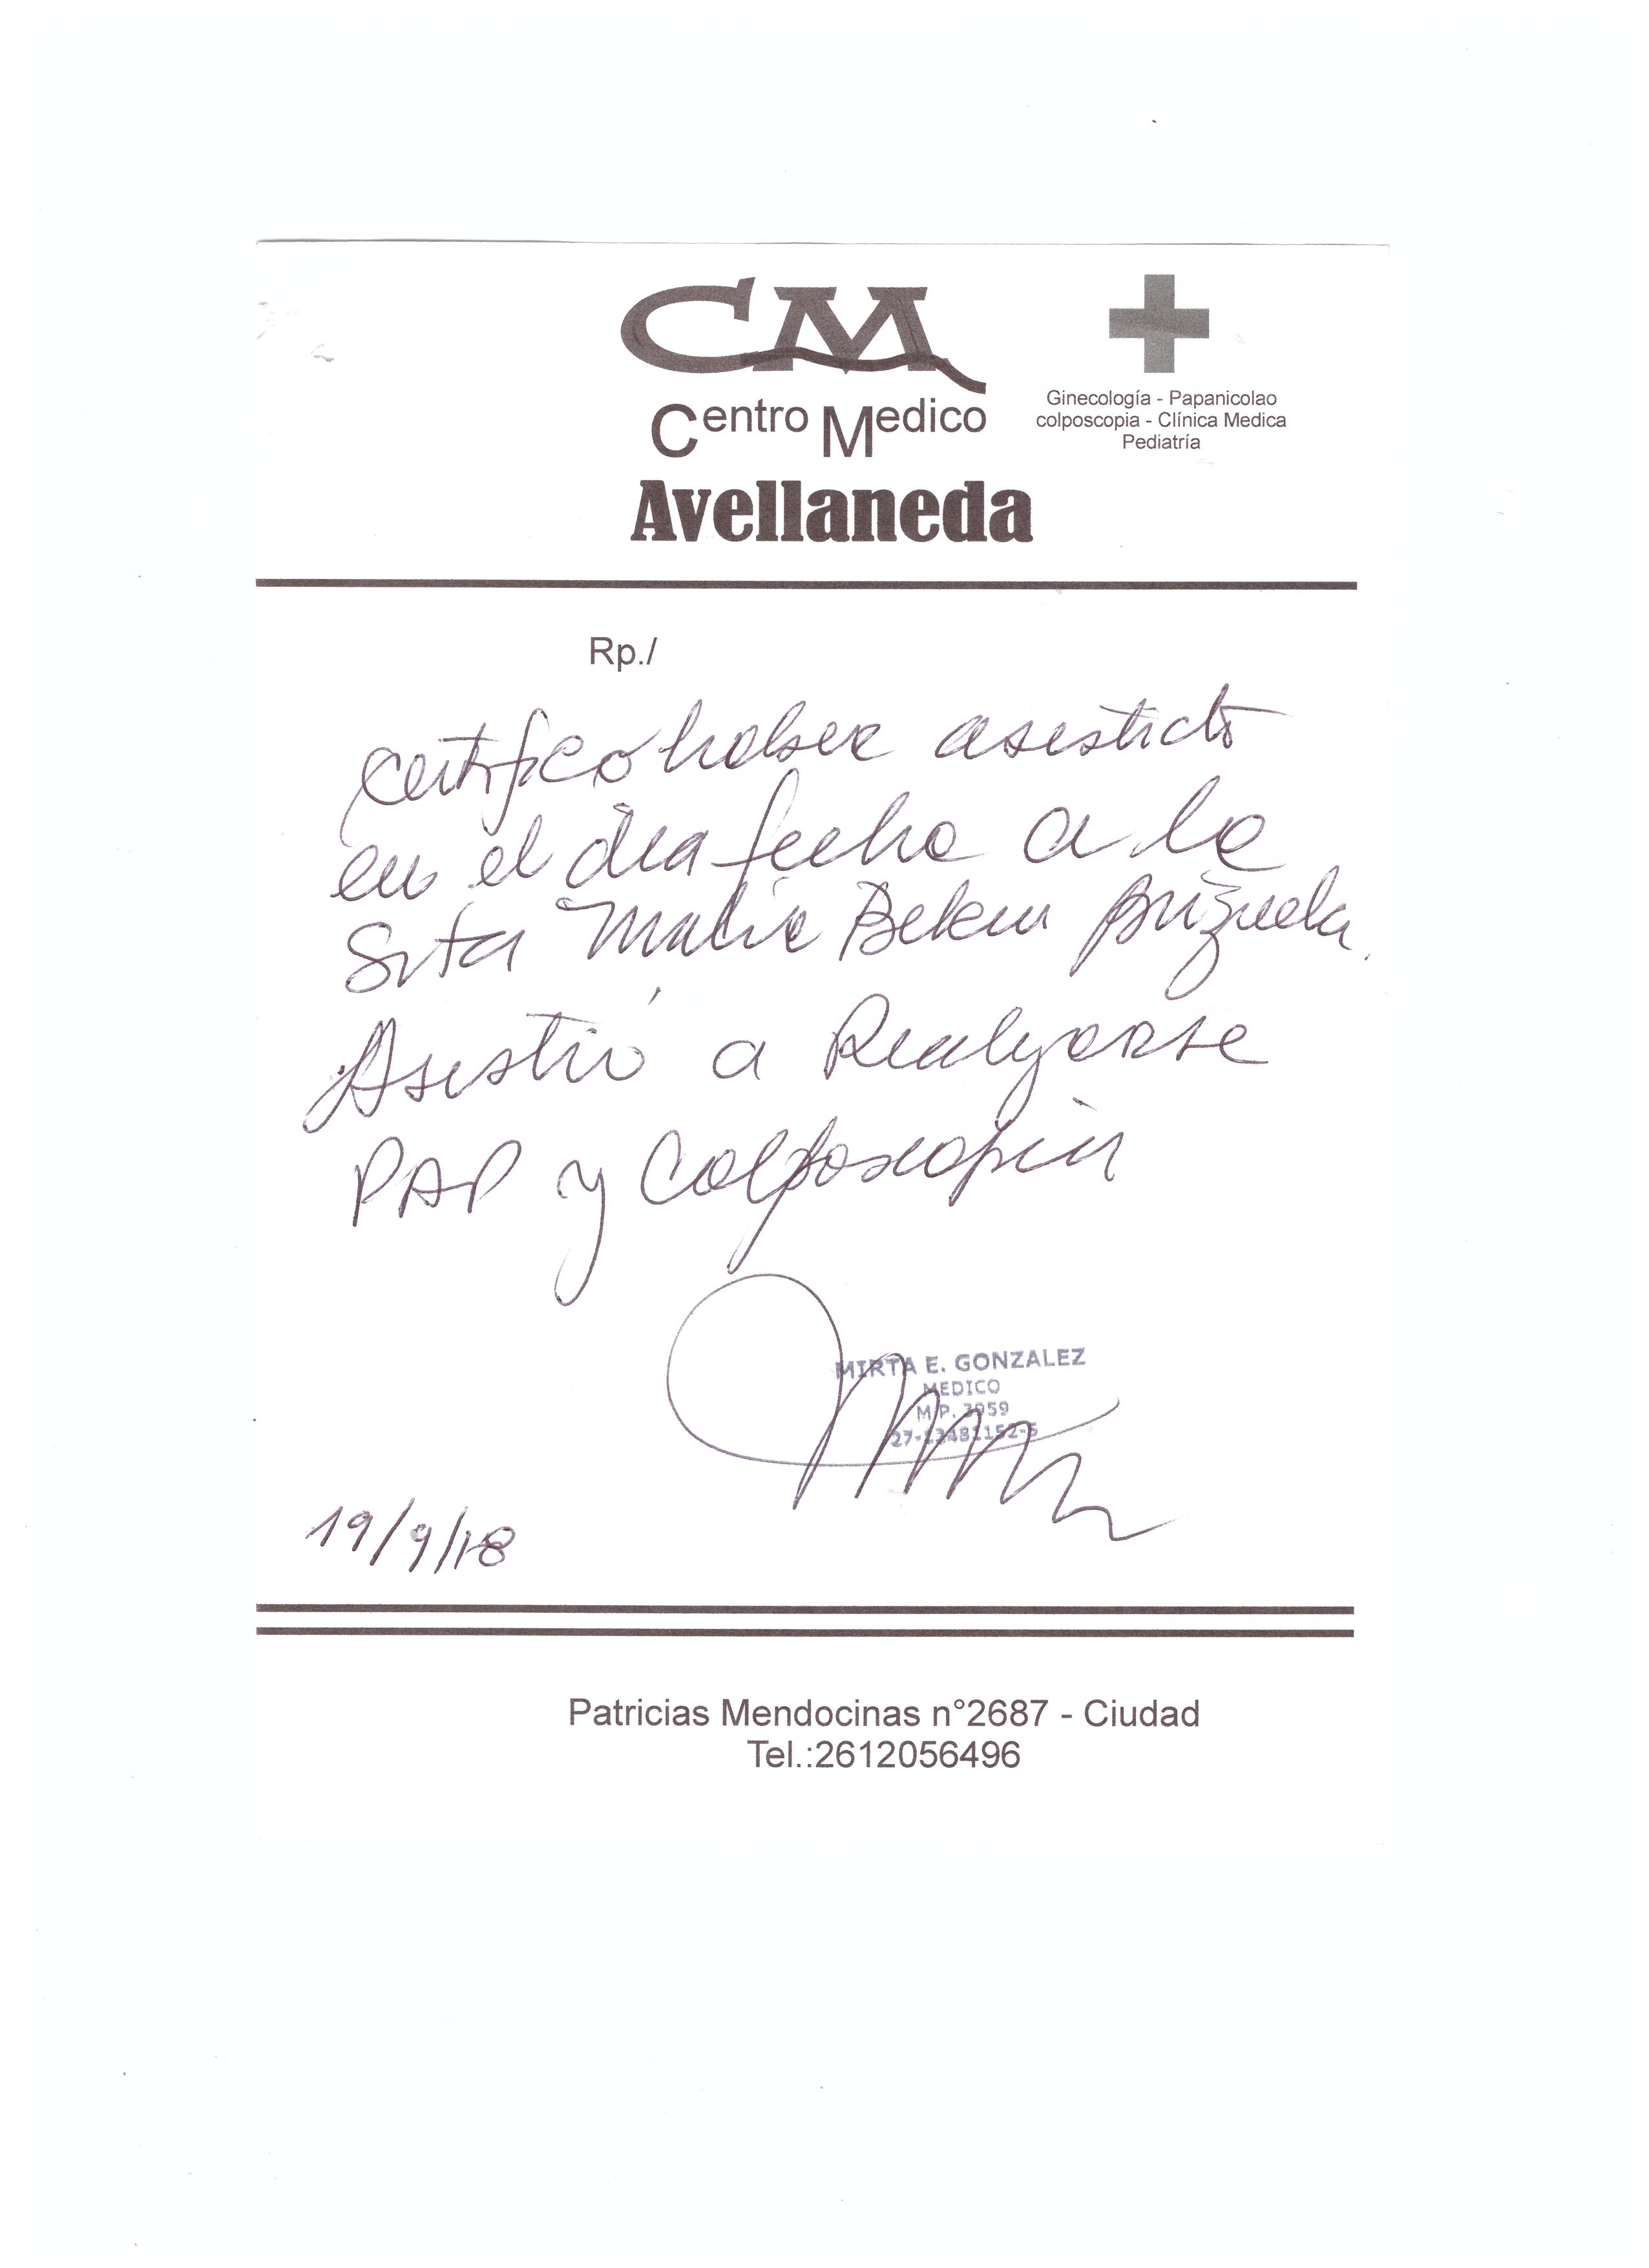 CM
Centro Medico
Avellaneda
Ginecología - Papanicolao
colposcopia - Clínica Medica
Pediatría
Rp./
Certifico haber asistido
en el dia fecha a la
Srta Maria Belen Brizuela.
Asistió a Realizarse
PAP y Colposcopia
MIRTA E. GONZALEZ
MEDICO
M.P. 3959
27-13481152-5
19/9/18
Patricias Mendocinas n°2687 - Ciudad
Tel.:2612056496